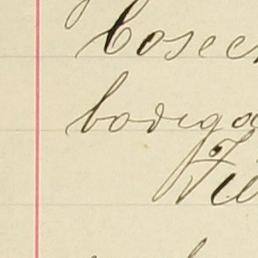 Cosec
bodega
Fie